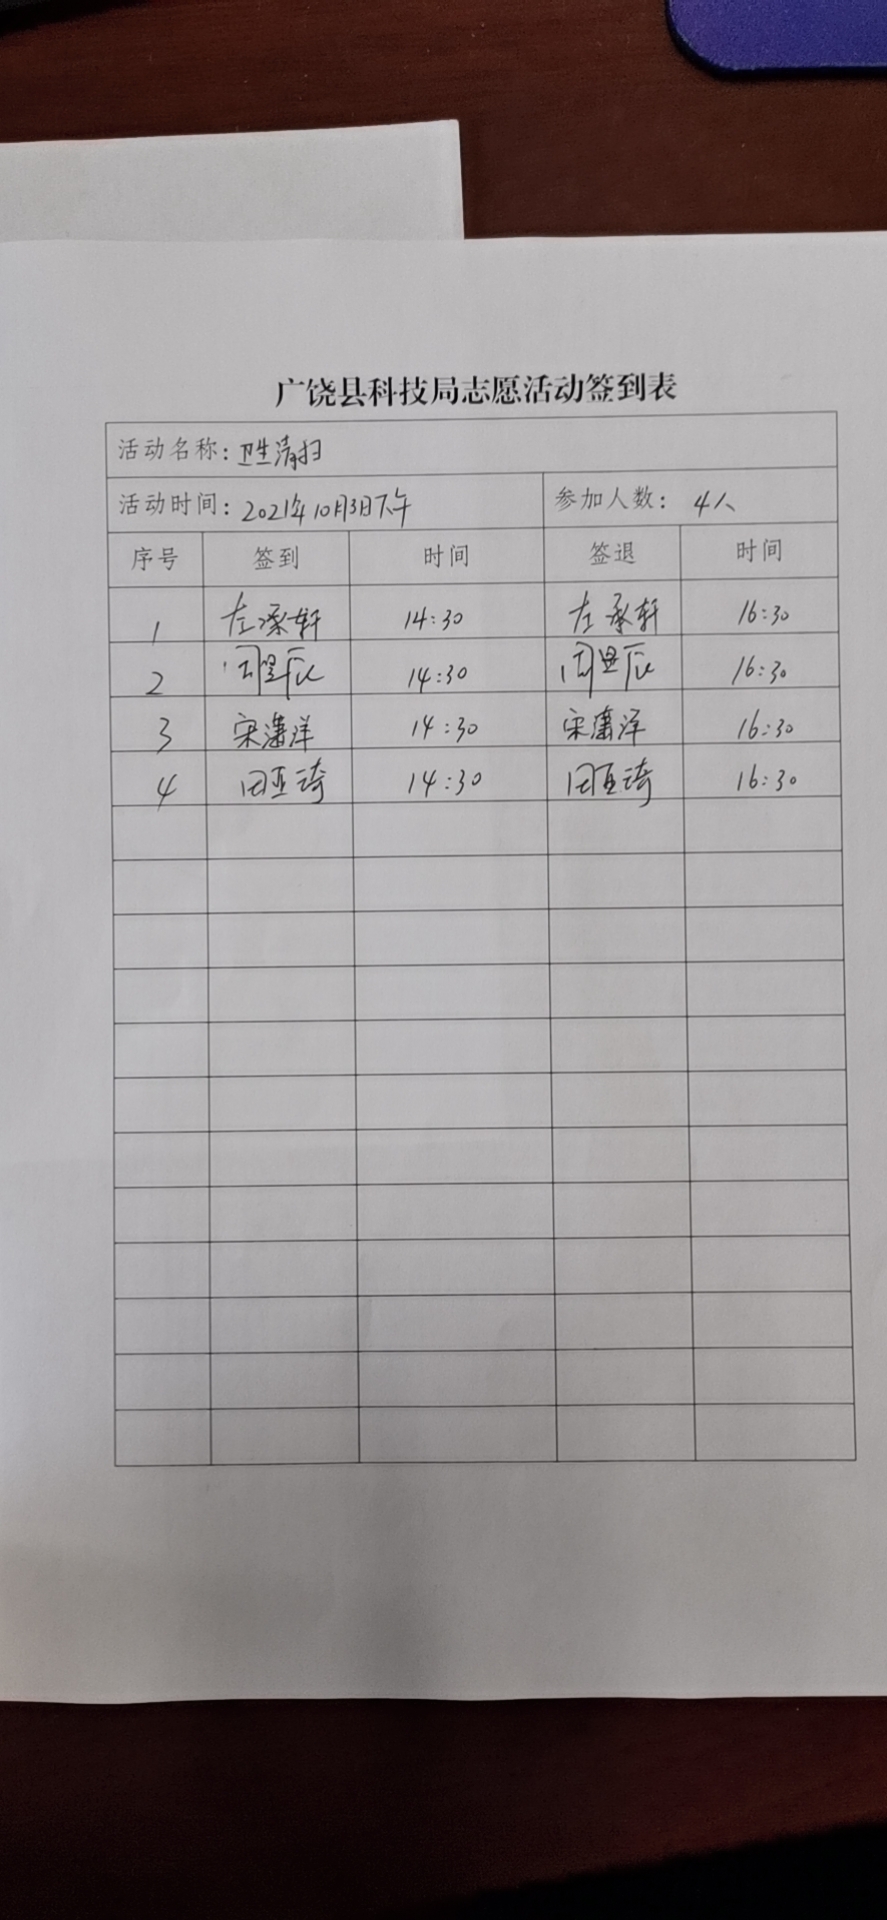 广饶县科技局志愿活动签到表
活动名称：卫生清扫
活动时间：2021年10月3日下午 参加人数：4人
序号 签到 时间 签退 时间
1 左承轩 14:30 左承轩 16:30
2 周昱辰 14:30 周昱辰 16:30
3 宋潇洋 14:30 宋潇洋 16:30
4 田亚琦 14:30 田亚琦 16:30